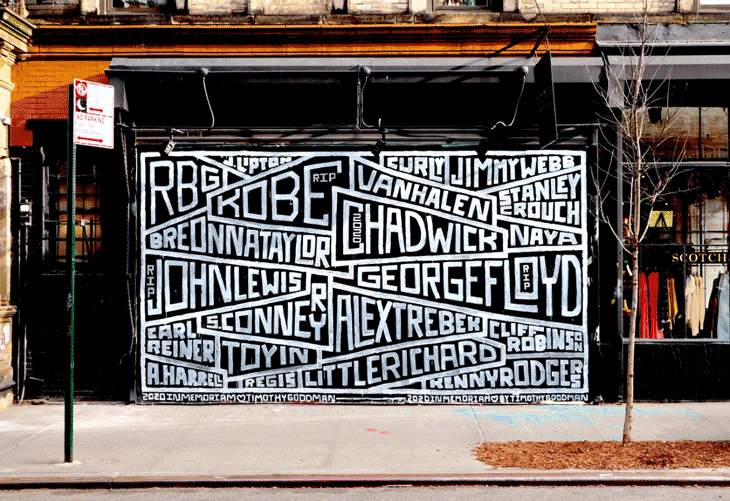 NO PARKING
J.LIPTON
CURLY
JIMMYWEBB
RBG
KOBE
RIP
VANHALEN
STANLEY
CROUCH
BREONNATAYLOR
2020
CHADWICK
NAYA
RIP
JOHNLEWIS
GEORGEFLOYD
RIP
SCOTCH
CARL
REINER
S.CONNERY
ALEXTREBEK
CLIFF
ROBINSON
TOYIN
LITTLERICHARD
A.HARRELL
REGIS
KENNYRODGERS
2020INMEMORIAM♡TIMOTHYGOODMAN
2020INMEMORIAM♡BYTIMOTHYGOODMAN